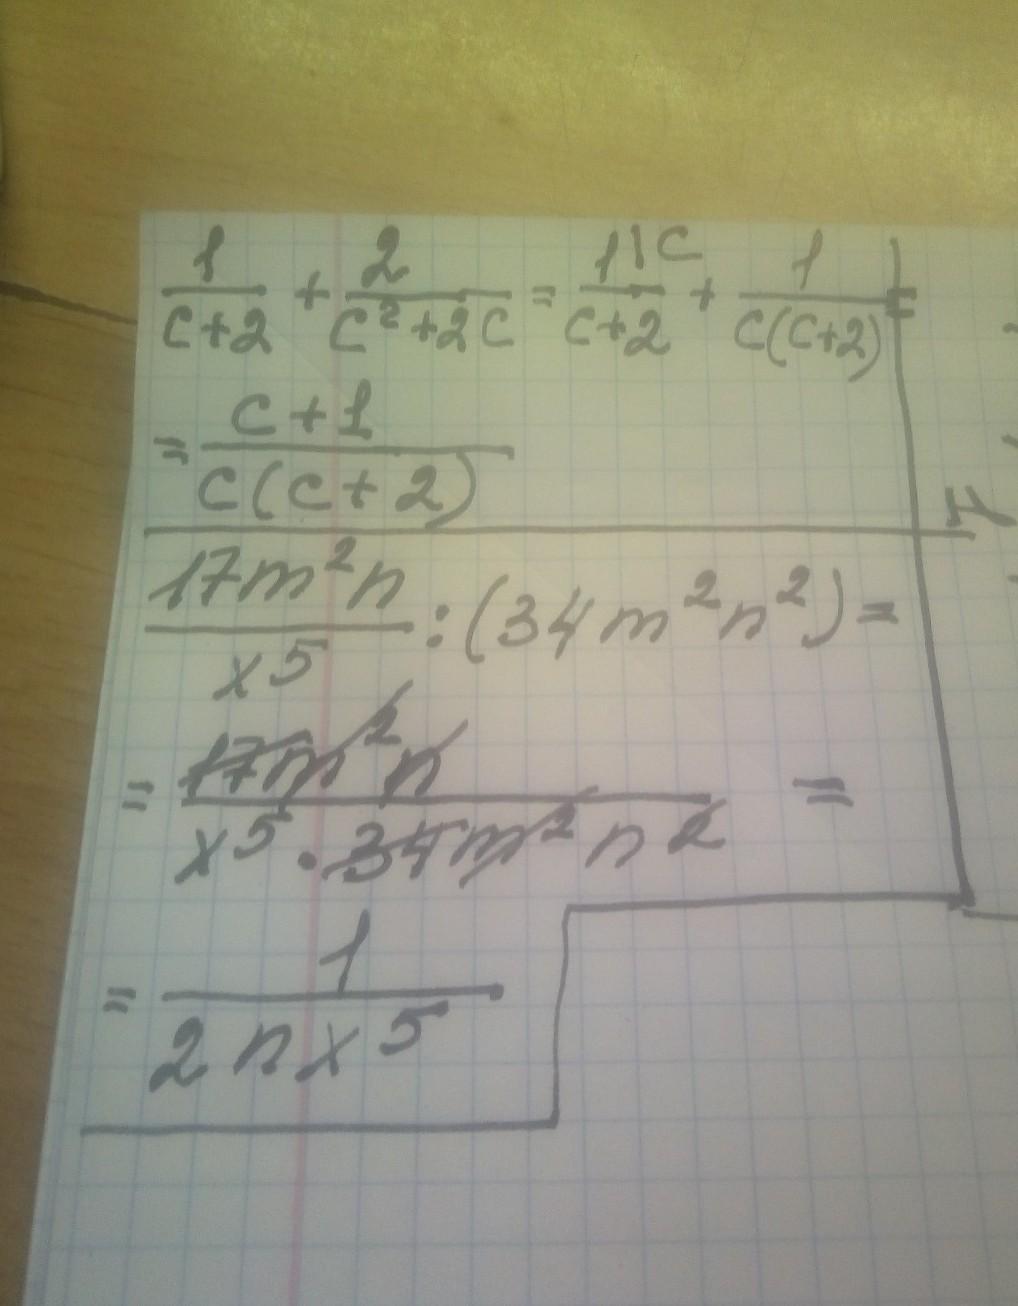 1/(c+2) + 2/(c²+2c) = 1\c/(c+2) + 1/(c(c+2)) =
= (c+1)/(c(c+2))
17m²n/x⁵ : (34m²n²) =
= 17m²n/(x⁵ · 34m²n²) =
= 1/(2nx⁵)